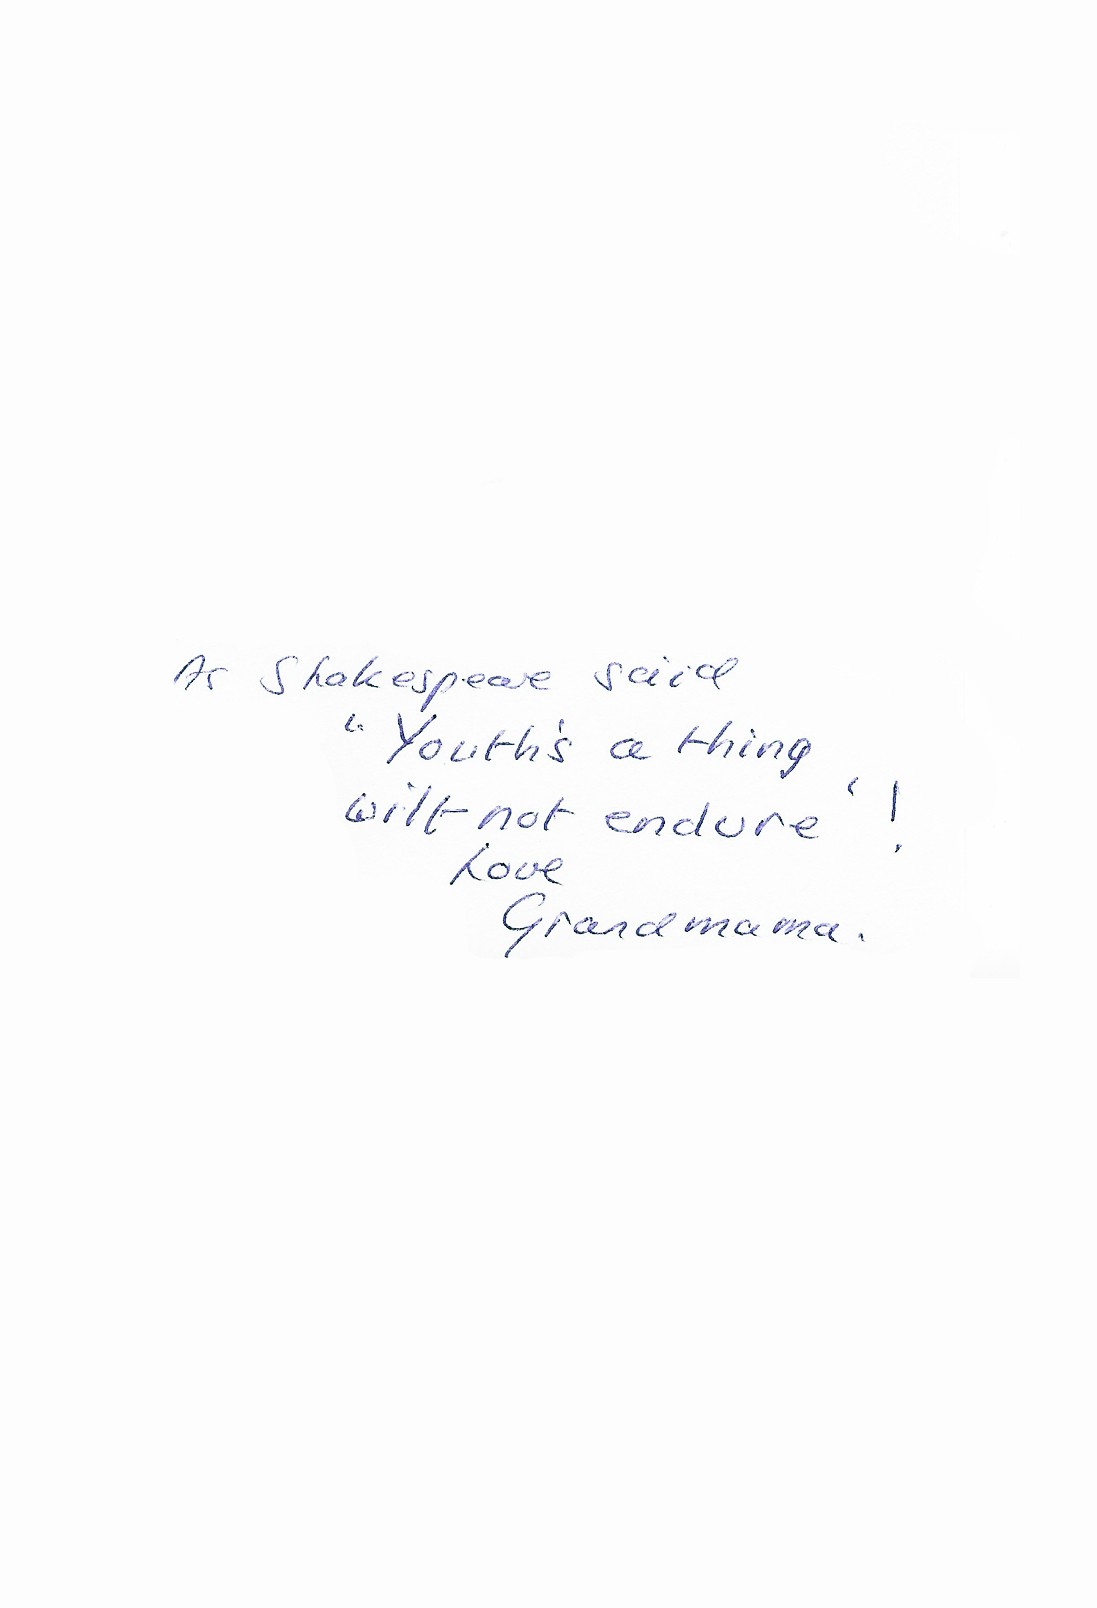 As Shakespeare said
"Youth's a thing
wilt not endure"!
Love
Grandmama.